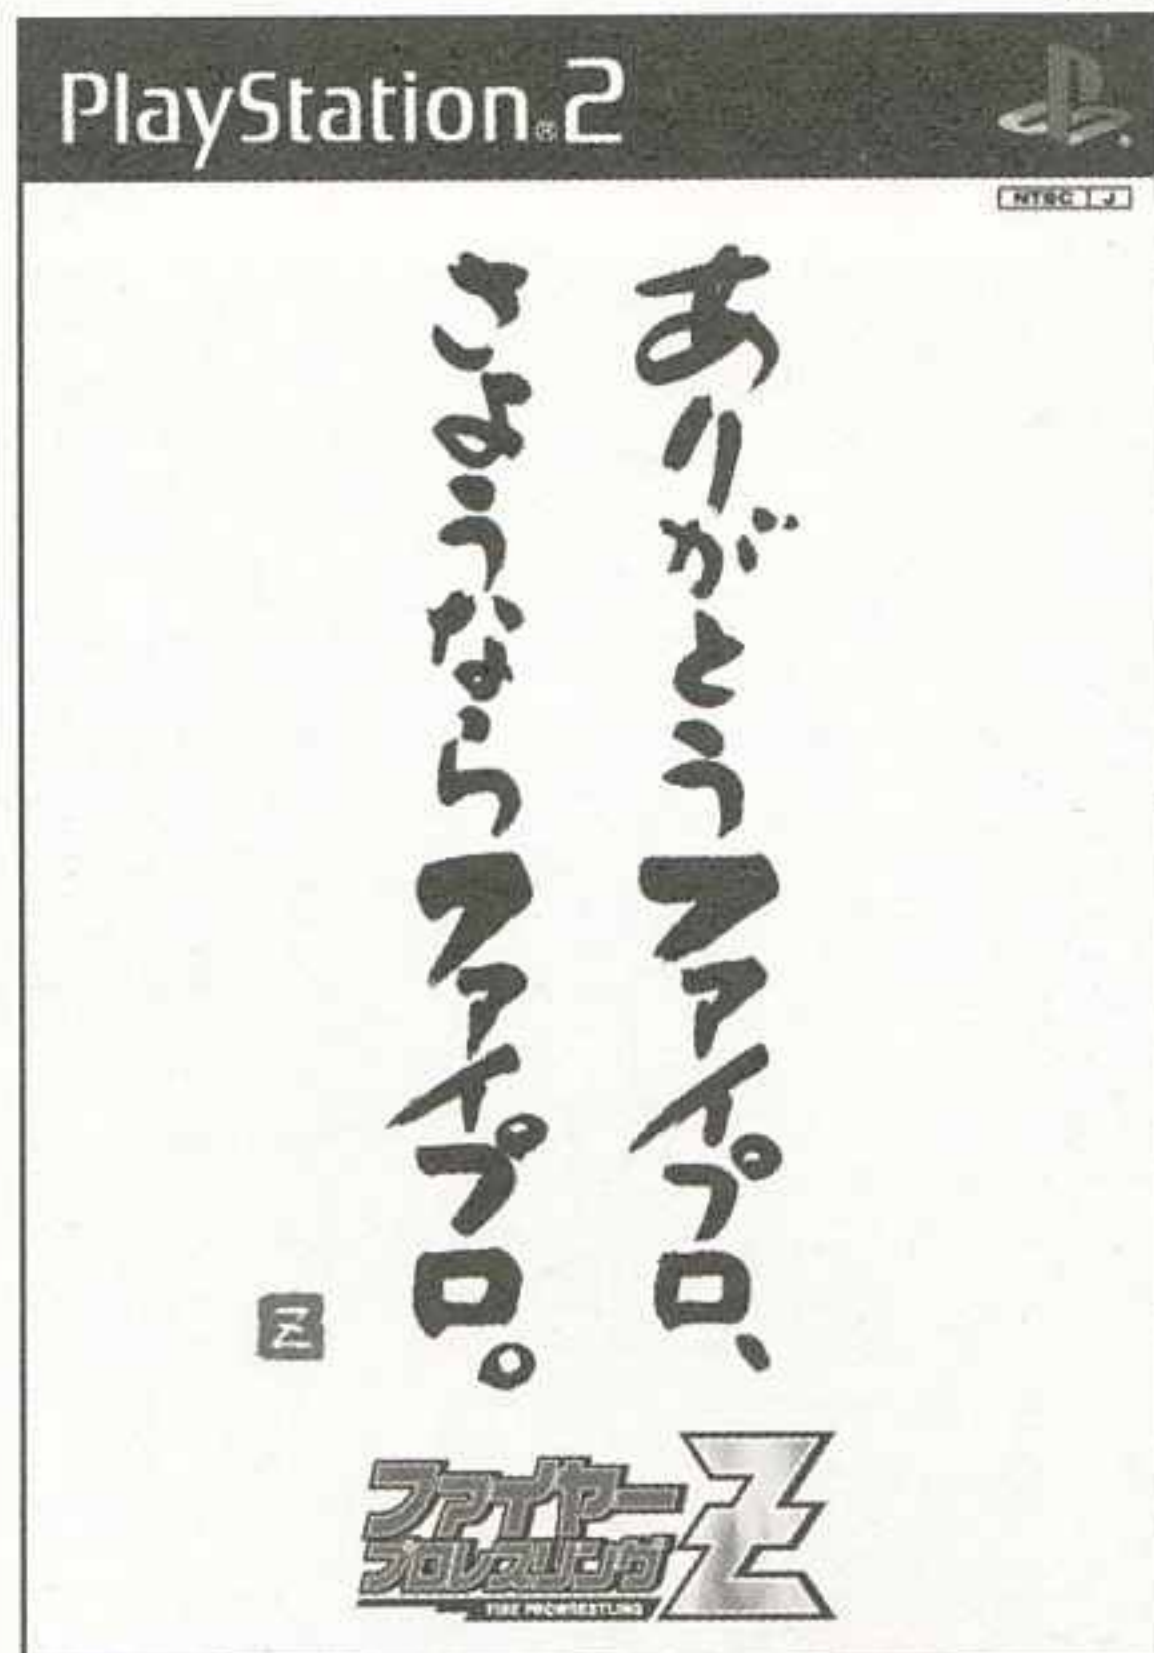 PlayStation®2
NTSC J
ありがとうファイプロ、
さようならファイプロ。
Z
ファイヤー
プロレスリング
Z
FIRE PROWRESTLING